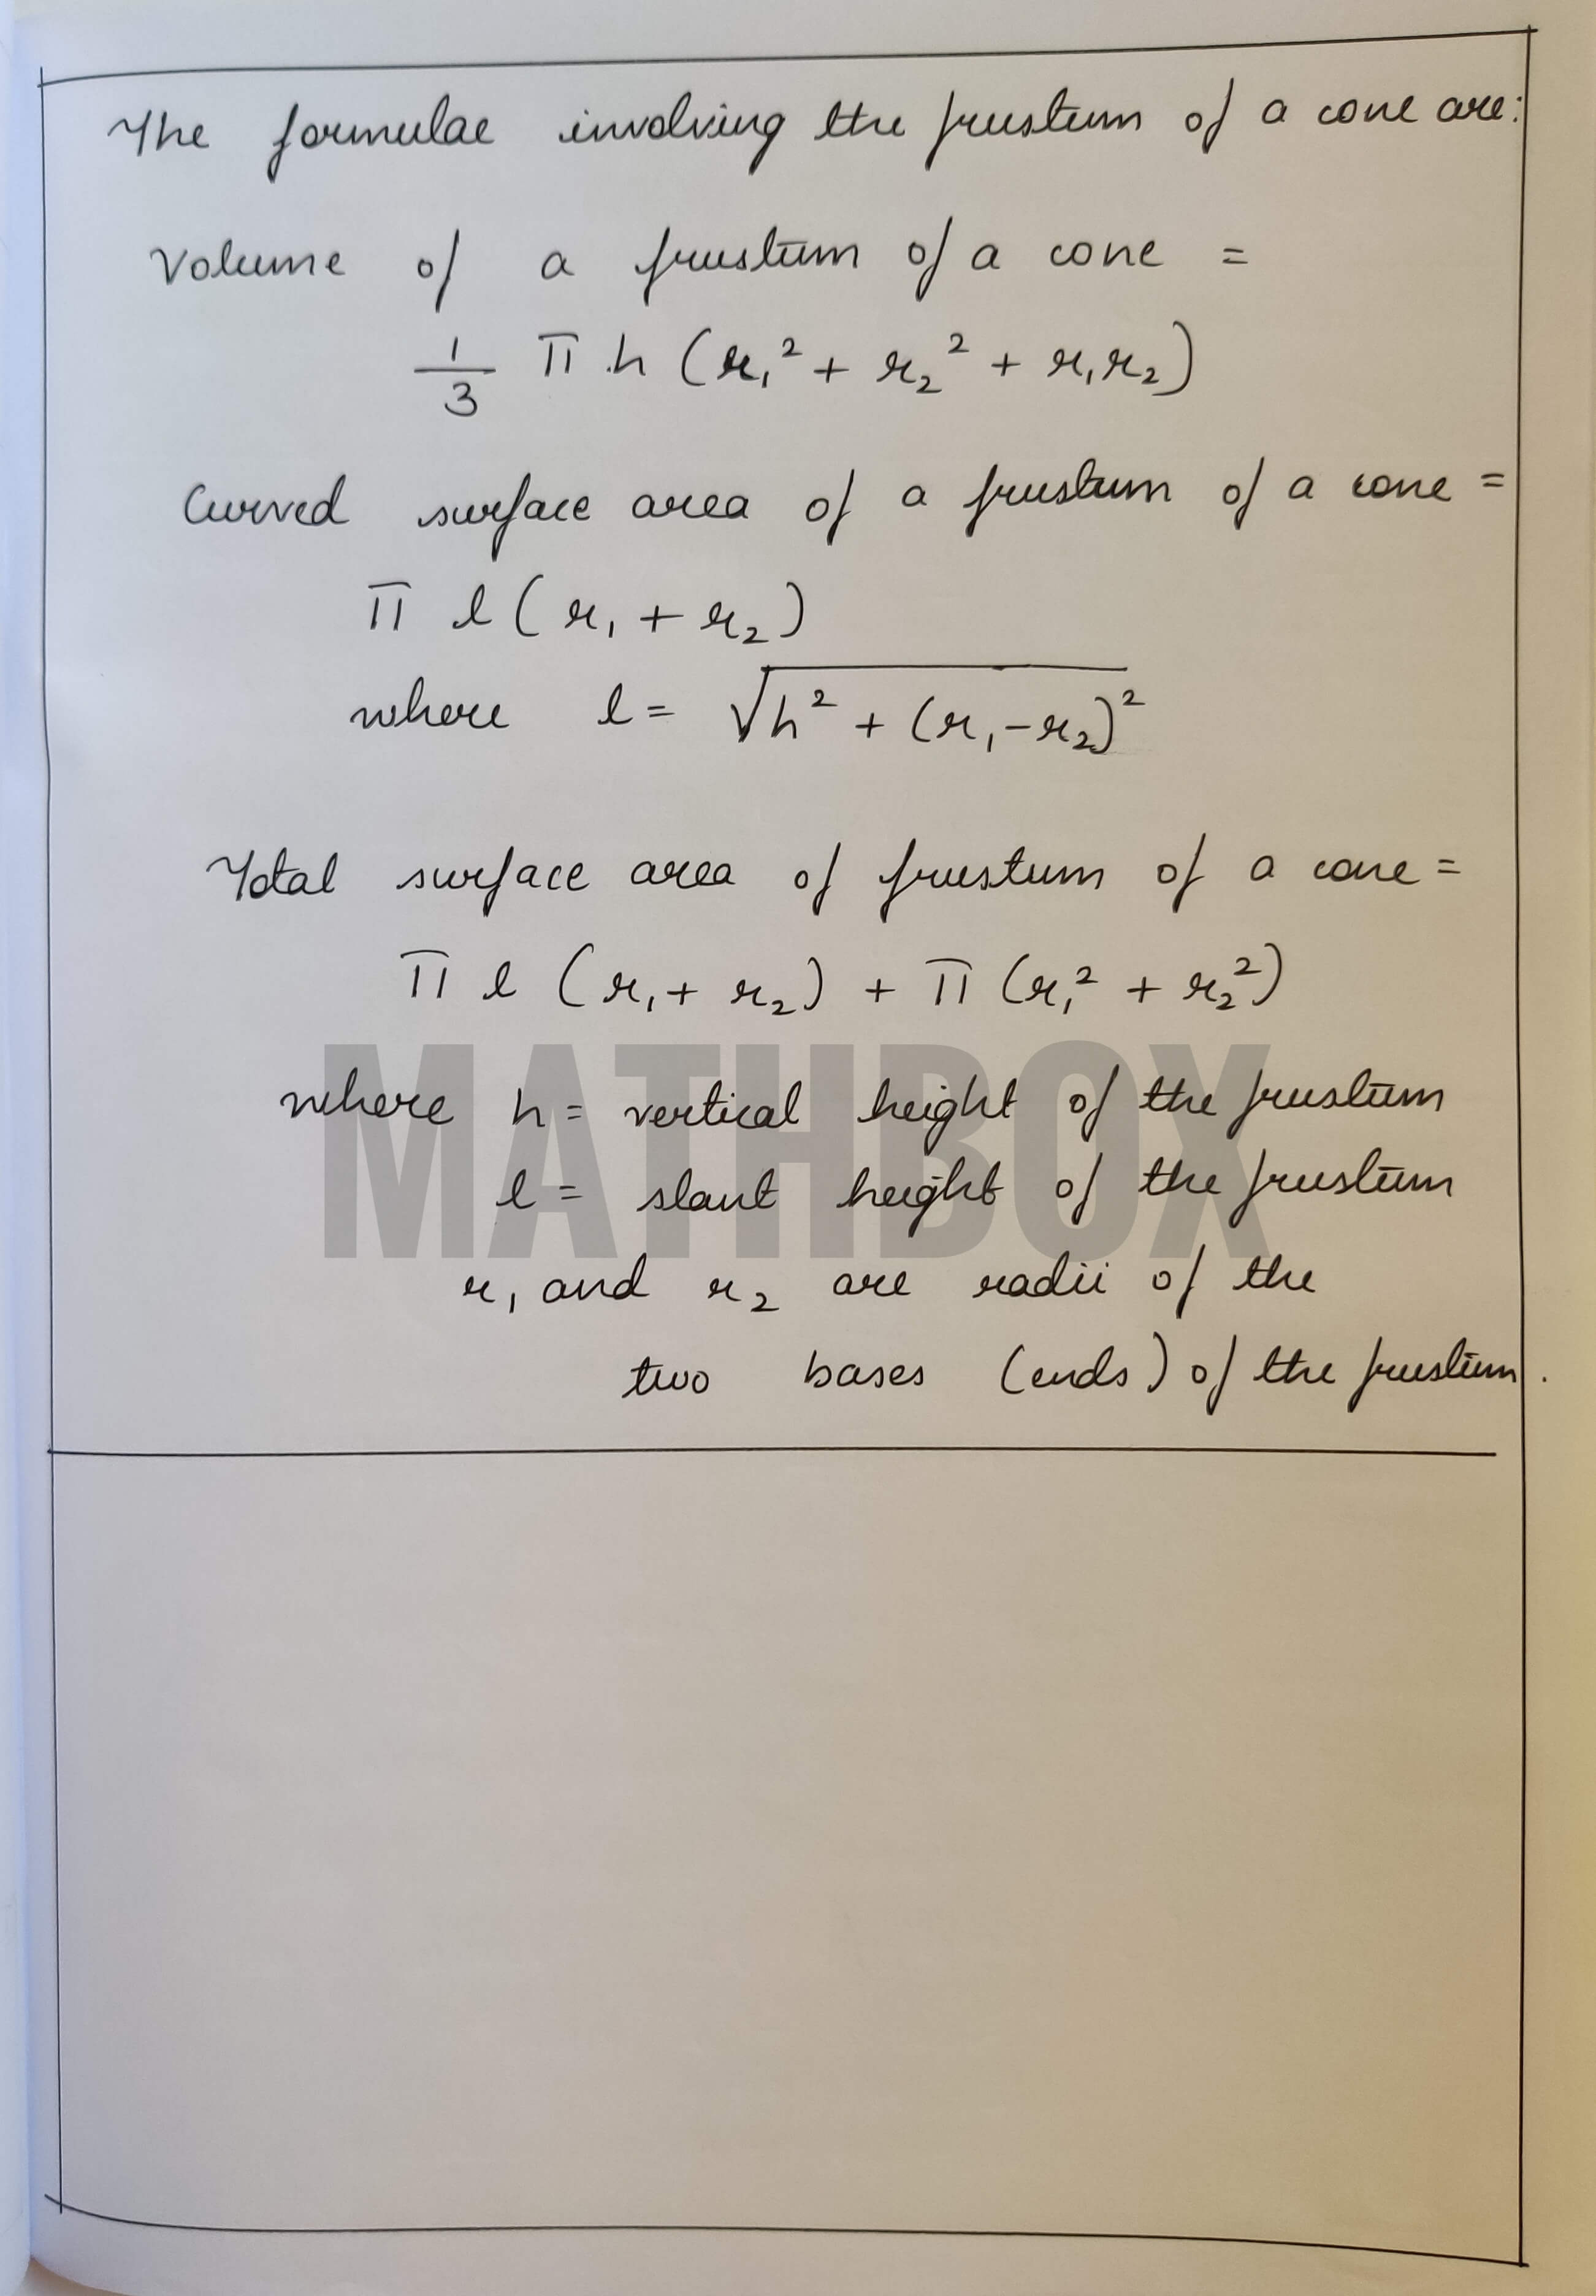 The formulae involving the frustum of a cone are:
Volume of a frustum of a cone =
1/3 π h (r₁² + r₂² + r₁r₂)
Curved surface area of a frustum of a cone =
π l (r₁ + r₂)
where l = √(h² + (r₁ - r₂)²)
Total surface area of frustum of a cone =
π l (r₁ + r₂) + π (r₁² + r₂²)
MATHBOX
where h = vertical height of the frustum
l = slant height of the frustum
r₁ and r₂ are radii of the
two bases (ends) of the frustum.